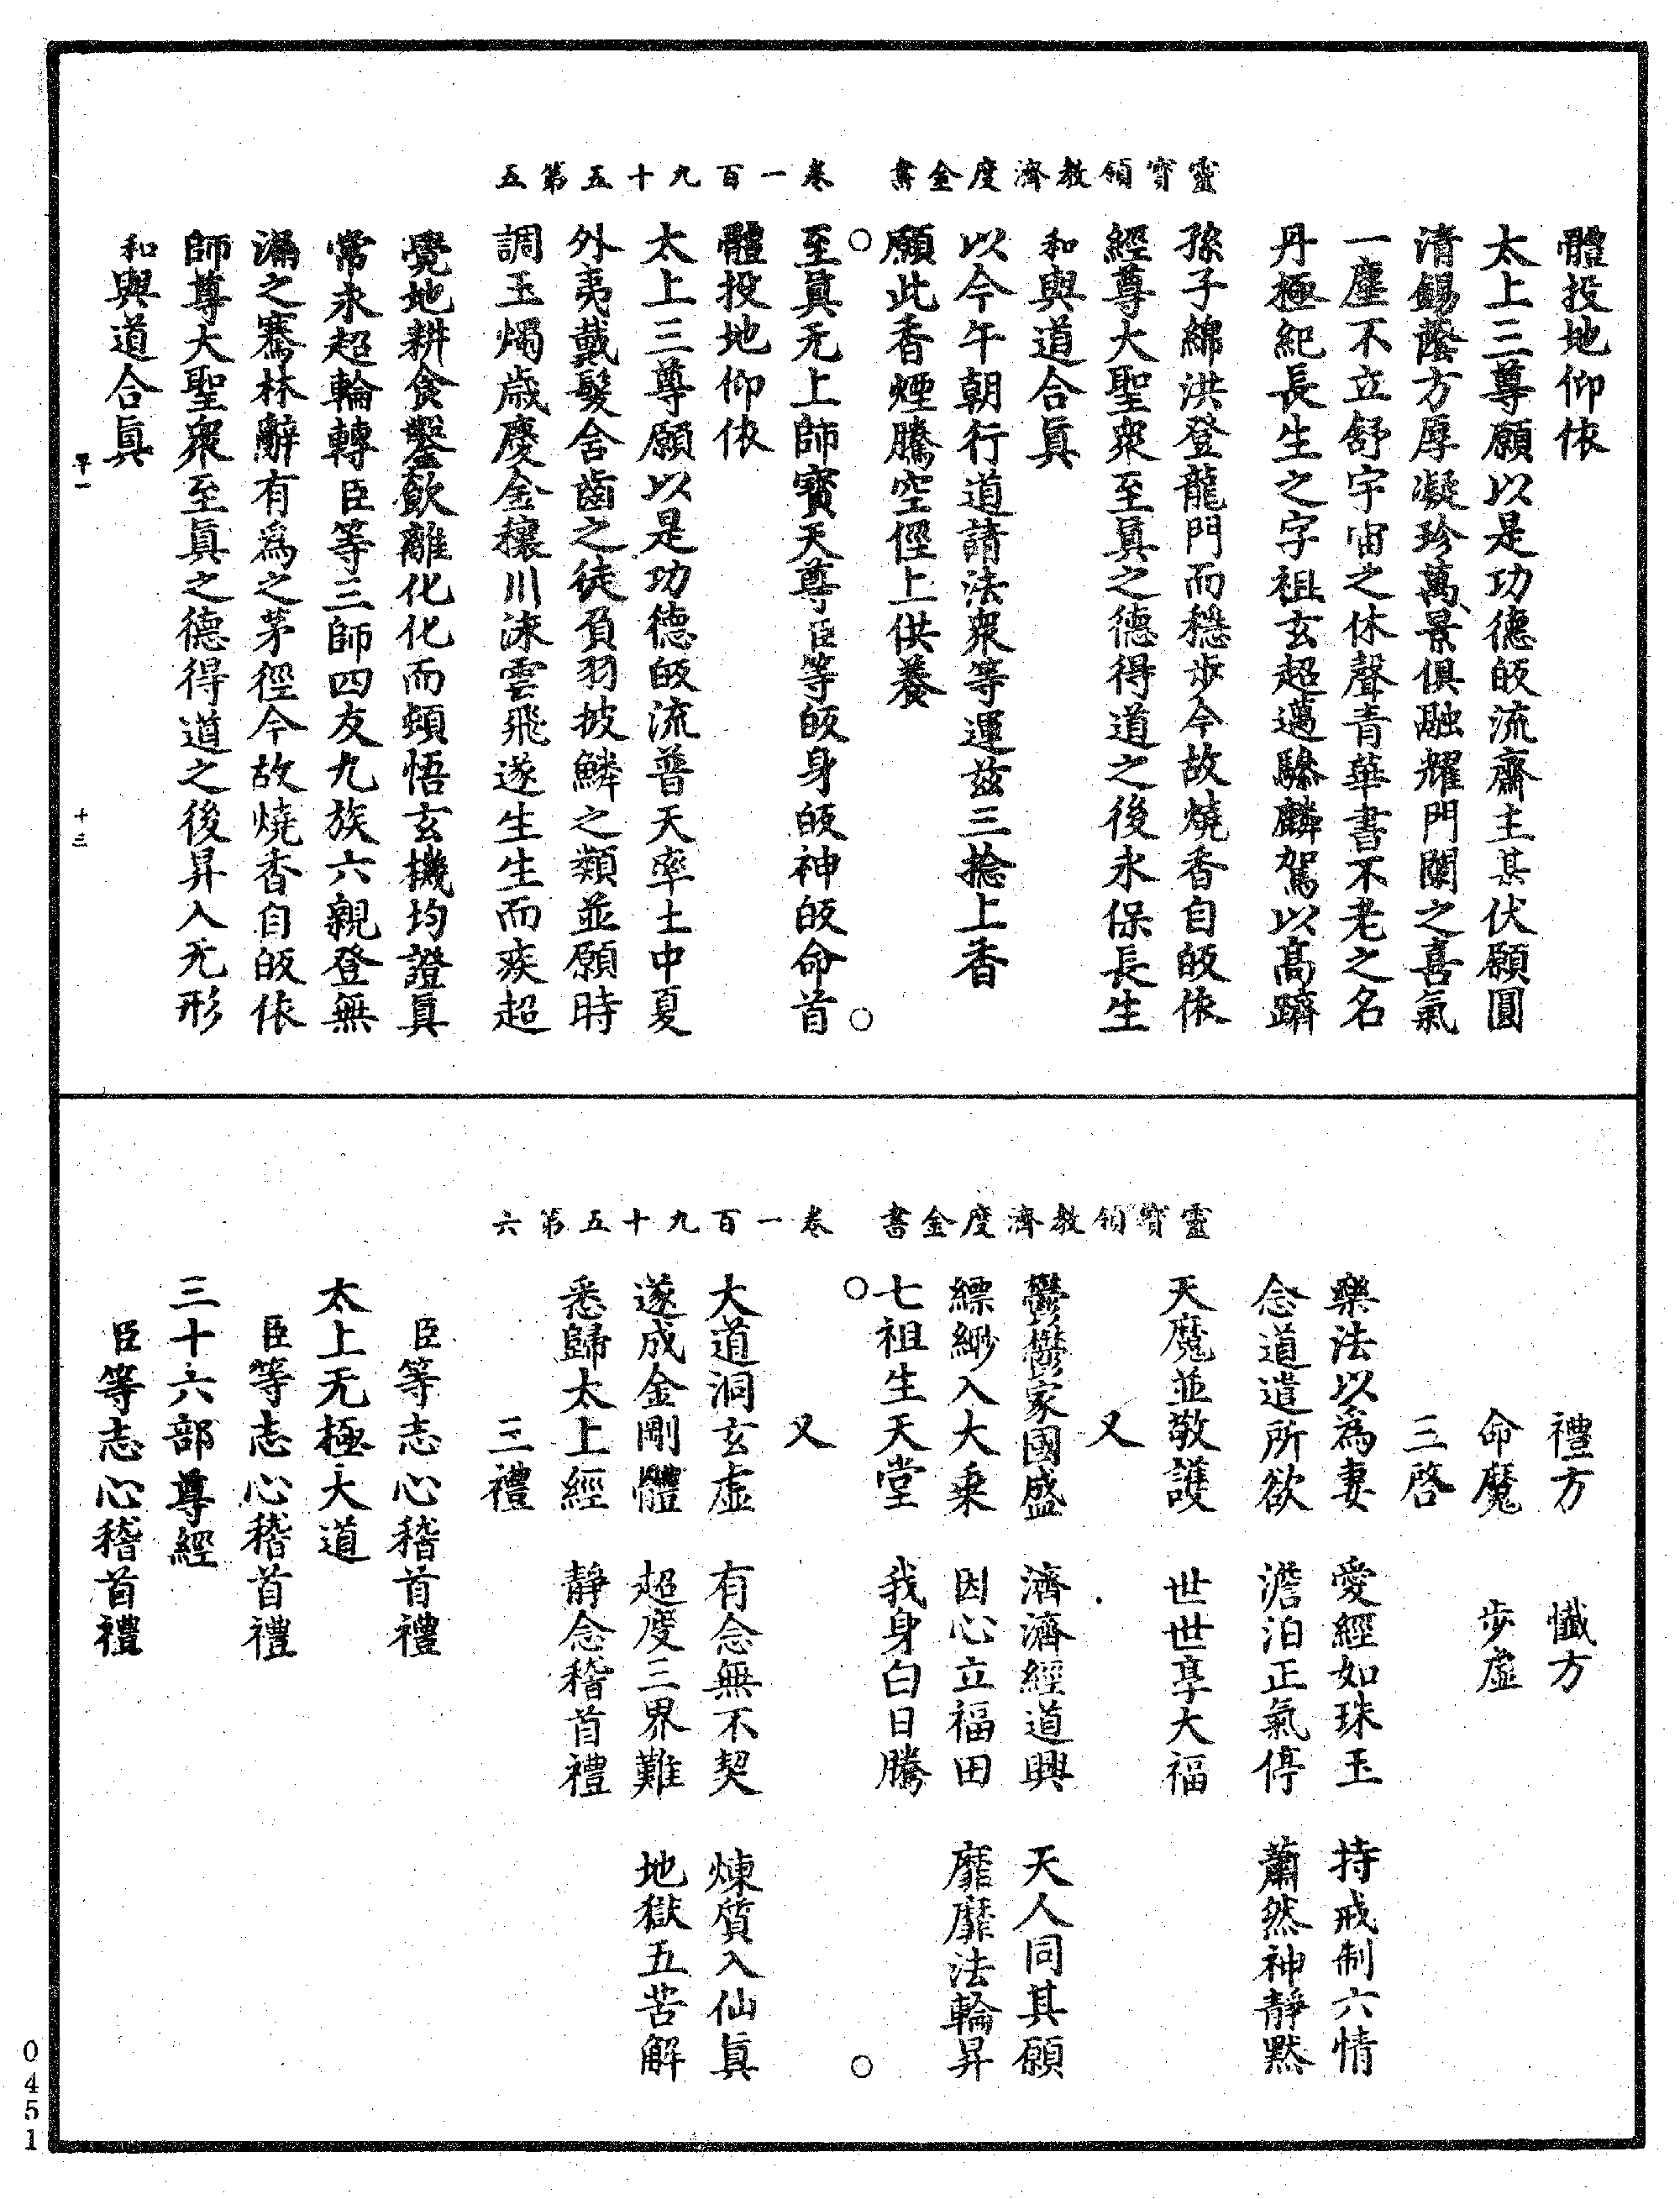 靈寶領教濟度金書　卷一百九十五第五
體投地仰依
太上三尊願以是功德皈流齋主某伏願圓
清錫蔭方厚凝珍萬景俱融耀門闌之喜氣
一塵不立舒宇宙之休聲青華書不老之名
丹極紀長生之字祖玄超邁驂麟駕以高躋
孫子綿洪登龍門而穩步今故燒香自皈依
經尊大聖衆至真之德得道之後永保長生
和與道合眞
以今午朝行道諸法衆等運兹三捻上香
願此香煙騰空徑上供養
至眞无上師寶天尊臣等皈身皈神皈命首
體投地仰依
太上三尊願以是功德皈流普天率土中夏
外夷戴髮含齒之徒負羽披鱗之類並願時
調玉燭歲慶金穰川泳雲飛遂生生而疾超
覺地耕食鑿飲離化化而頓悟玄機均證眞
常永超輪轉臣等三師四友九族六親登無
漏之騫林辭有爲之茅徑今故燒香自皈依
師尊大聖衆至眞之德得道之後昇入无形
和與道合眞
早一　十三
靈寶領教濟度金書　卷一百九十五第六
禮方　懺方
命魔　步虛
三啓
樂法以爲妻　愛經如珠玉　持戒制六情
念道遣所欲　澹泊正氣停　蕭然神靜默
天魔並敬護　世世享大福
又
鬱鬱家國盛　濟濟經道興　天人同其願
縹緲入大乘　因心立福田　靡靡法輪昇
七祖生天堂　我身白日騰
又
大道洞玄虛　有念無不契　煉質入仙眞
遂成金剛體　超度三界難　地獄五苦解
悉歸太上經　靜念稽首禮
三禮
臣等志心稽首禮
太上无極大道
臣等志心稽首禮
三十六部尊經
臣等志心稽首禮
0451